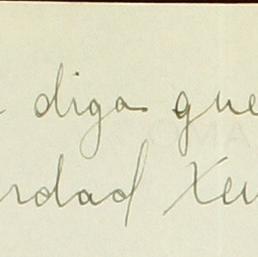 diga que
rdad Xeu